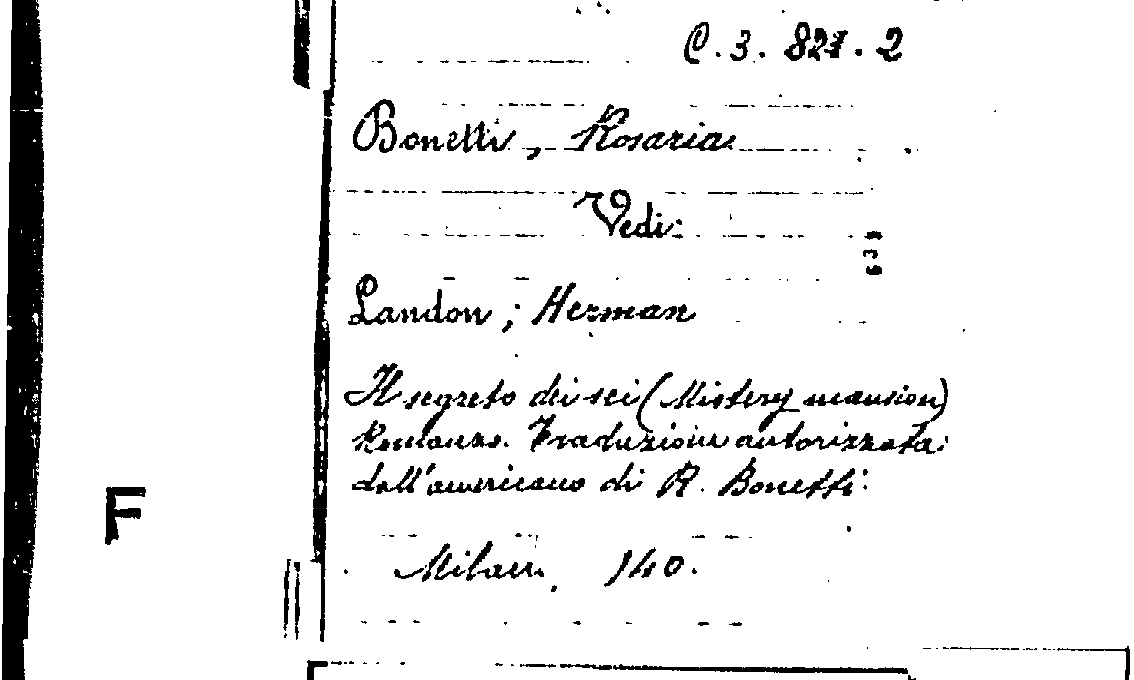 C. 3. 821. 2
Bonetti, Rosaria
Vedi:
Landon, Herman
Il segreto dei sei (Mistery mansion)
Romanzo. Traduzione autorizzata
dall'americano di R. Bonetti.
F
Milano, 140.